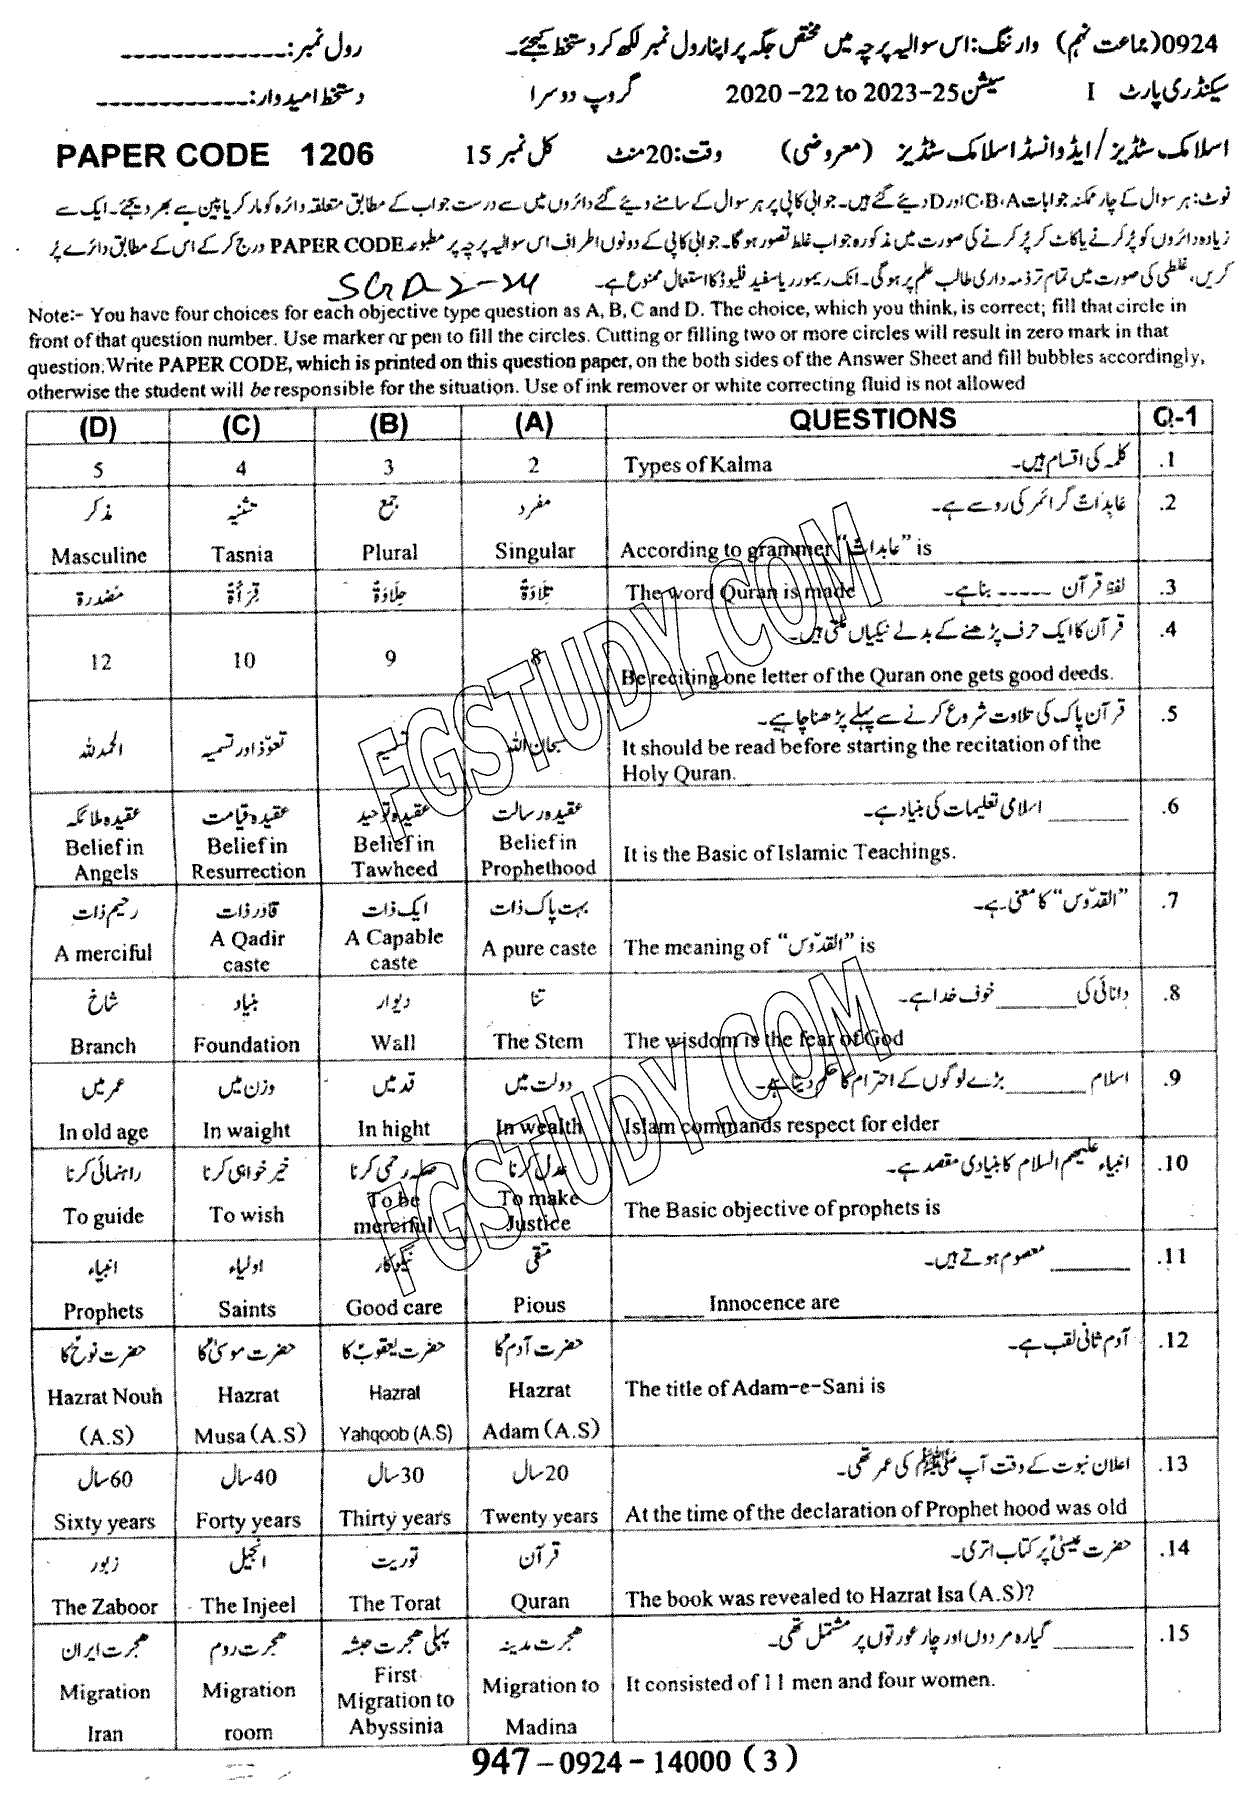 0924(جماعت نہم) وارننگ: اس سوالیہ پرچہ میں مختص جگہ پر اپنا رول نمبر لکھ کر دستخط کیجئے۔ رول نمبر: -------------
سیکنڈری پارٹ I سیشن 2020 -22 to 2023-25 گروپ دوسرا دستخط امیدوار: -------------
اسلامک سٹڈیز / ایڈوانسڈ اسلامک سٹڈیز (معروضی) وقت: 20 منٹ کل نمبر 15 PAPER CODE 1206
نوٹ: ہر سوال کے چار ممکنہ جوابات C،B،A اور D دیئے گئے ہیں۔ جوابی کاپی پر ہر سوال کے سامنے دیئے گئے دائروں میں سے درست جواب کے مطابق متعلقہ دائرہ کو مارکر یا پین سے بھر دیجئے۔ ایک سے
زیادہ دائروں کو پُر کرنے یا کاٹ کر پُر کرنے کی صورت میں مذکورہ جواب غلط تصور ہوگا۔ جوابی کاپی کے دونوں اطراف اس سوالیہ پرچہ پر مطبوعہ PAPER CODE درج کر کے اس کے مطابق دائرے پُر
کریں، غلطی کی صورت میں تمام تر ذمہ داری طالب علم پر ہوگی۔ انک ریمور یا سفید فلیوڈ کا استعمال ممنوع ہے۔
Note:- You have four choices for each objective type question as A, B, C and D. The choice, which you think, is correct; fill that circle in
front of that question number. Use marker or pen to fill the circles. Cutting or filling two or more circles will result in zero mark in that
question. Write PAPER CODE, which is printed on this question paper, on the both sides of the Answer Sheet and fill bubbles accordingly,
otherwise the student will be responsible for the situation. Use of ink remover or white correcting fluid is not allowed
(D) (C) (B) (A) QUESTIONS Q-1
5 4 3 2 Types of Kalma کلمہ کی اقسام ہیں۔ .1
مذکر تثنیہ جمع مفرد عَابِدَاتٌ گرائمر کی رو سے ہے۔ .2
Masculine Tasnia Plural Singular According to grammer "عَابِدَاتٌ" is
مَصْدَرَة قِرَأَةٌ حِلَاوَةٌ تِلَاوَةٌ The word Quran is made لفظ قرآن ----- بنا ہے۔ .3
قرآن کا ایک حرف پڑھنے کے بدلے نیکیاں ملتی ہیں۔ .4
12 10 9 8 Be reciting one letter of the Quran one gets good deeds.
قرآن پاک کی تلاوت شروع کرنے سے پہلے پڑھنا چاہیے۔ .5
الحمد للہ تعوّذ اور تسمیہ تسمیہ سبحان اللہ It should be read before starting the recitation of the
Holy Quran.
عقیدہ ملائکہ عقیدہ قیامت عقیدہ توحید عقیدہ رسالت ________ اسلامی تعلیمات کی بنیاد ہے۔ .6
Belief in Belief in Belief in Belief in It is the Basic of Islamic Teachings.
Angels Resurrection Tawheed Prophethood
رحیم ذات قادر ذات ایک ذات بہت پاک ذات "القدّوس" کا معنی ہے۔ .7
A merciful A Qadir A Capable A pure caste The meaning of "القدّوس" is
caste caste
شاخ بنیاد دیوار تنا دانائی کی ________ خوف خدا ہے۔ .8
Branch Foundation Wall The Stem The wisdom is the fear of God
عمر میں وزن میں قد میں دولت میں اسلام ________ بڑے لوگوں کے احترام کا حکم دیتا ہے۔ .9
In old age In waight In hight In wealth Islam commands respect for elder
راہنمائی کرنا خیر خواہی کرنا صلہ رحمی کرنا عدل کرنا انبیاء علیھم السلام کا بنیادی مقصد ہے۔ .10
To guide To wish To be merciful To make Justice The Basic objective of prophets is
انبیاء اولیاء نیکوکار متقی ________ معصوم ہوتے ہیں۔ .11
Prophets Saints Good care Pious ________ Innocence are
حضرت نوحؑ کا حضرت موسیٰؑ کا حضرت یعقوبؑ کا حضرت آدمؑ کا آدم ثانی لقب ہے۔ .12
Hazrat Nouh Hazrat Hazrat Hazrat The title of Adam-e-Sani is
(A.S) Musa (A.S) Yahqoob (A.S) Adam (A.S)
60 سال 40 سال 30 سال 20 سال اعلان نبوت کے وقت آپ ﷺ کی عمر تھی۔ .13
Sixty years Forty years Thirty years Twenty years At the time of the declaration of Prophet hood was old
زبور انجیل توریت قرآن حضرت عیسیٰؑ پر کتاب اتری۔ .14
The Zaboor The Injeel The Torat Quran The book was revealed to Hazrat Isa (A.S)?
ھجرت ایران ھجرت روم پہلی ھجرت حبشہ ھجرت مدینہ ________ گیارہ مردوں اور چار عورتوں پر مشتمل تھی۔ .15
Migration Migration First Migration to Migration to It consisted of 11 men and four women.
Iran room Abyssinia Madina
947-0924-14000 (3)
FGSTUDY.COM
FGSTUDY.COM